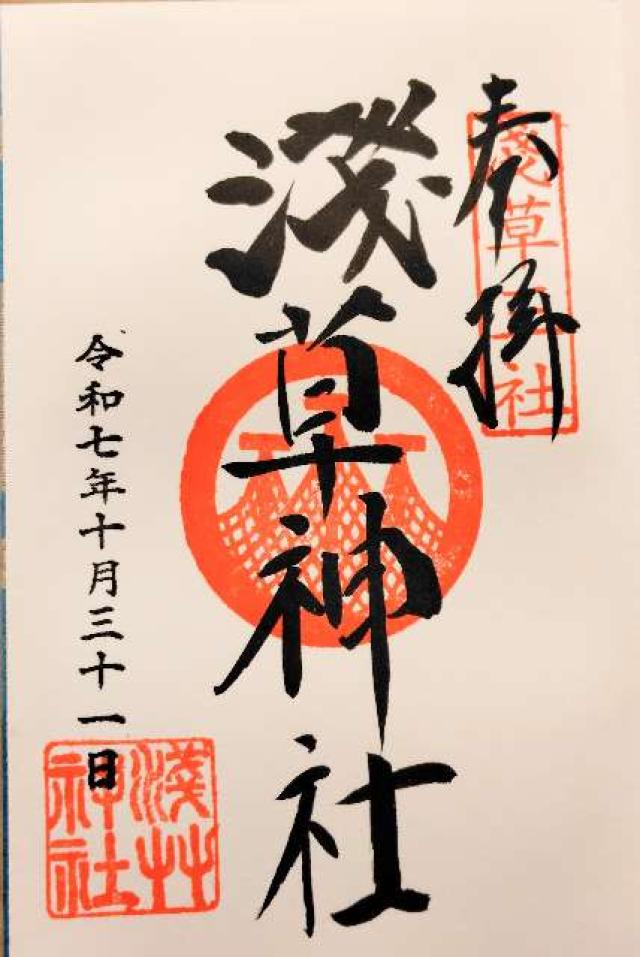 奉拝
淺草神社
令和七年十月三十一日
淺草
神社